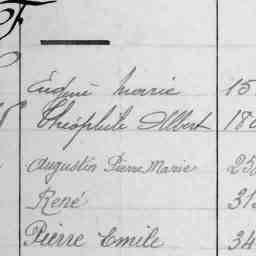 F
Eugène Marie 15
Théophile Albert 180
Augustin Pierre Marie 25
René 313
Pierre Emile 34